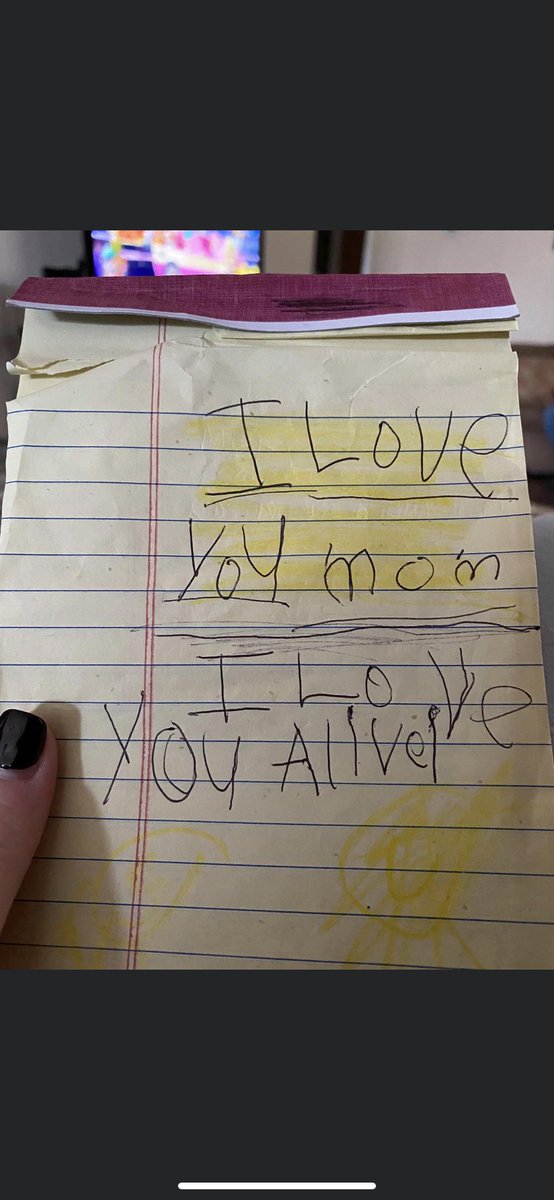 I Love
You mom
I Love
You Alivel